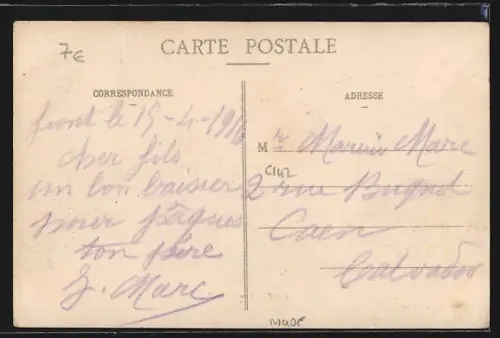 7€
CARTE POSTALE
CORRESPONDANCE
front le 15-4-1916
cher fils
un bon baiser
pour pâques
ton père
J. Marc
ADRESSE
Mr Marius Marc
2 rue
Caen
Calvados